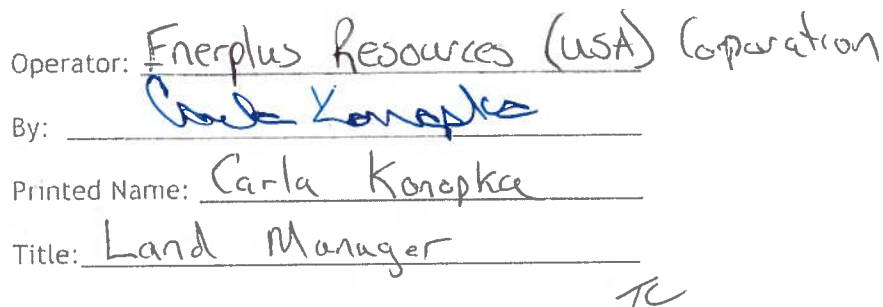 Operator: Enerplus Resources (USA) Corporation
By: Carla Konopka
Printed Name: Carla Konopka
Title: Land Manager
TC